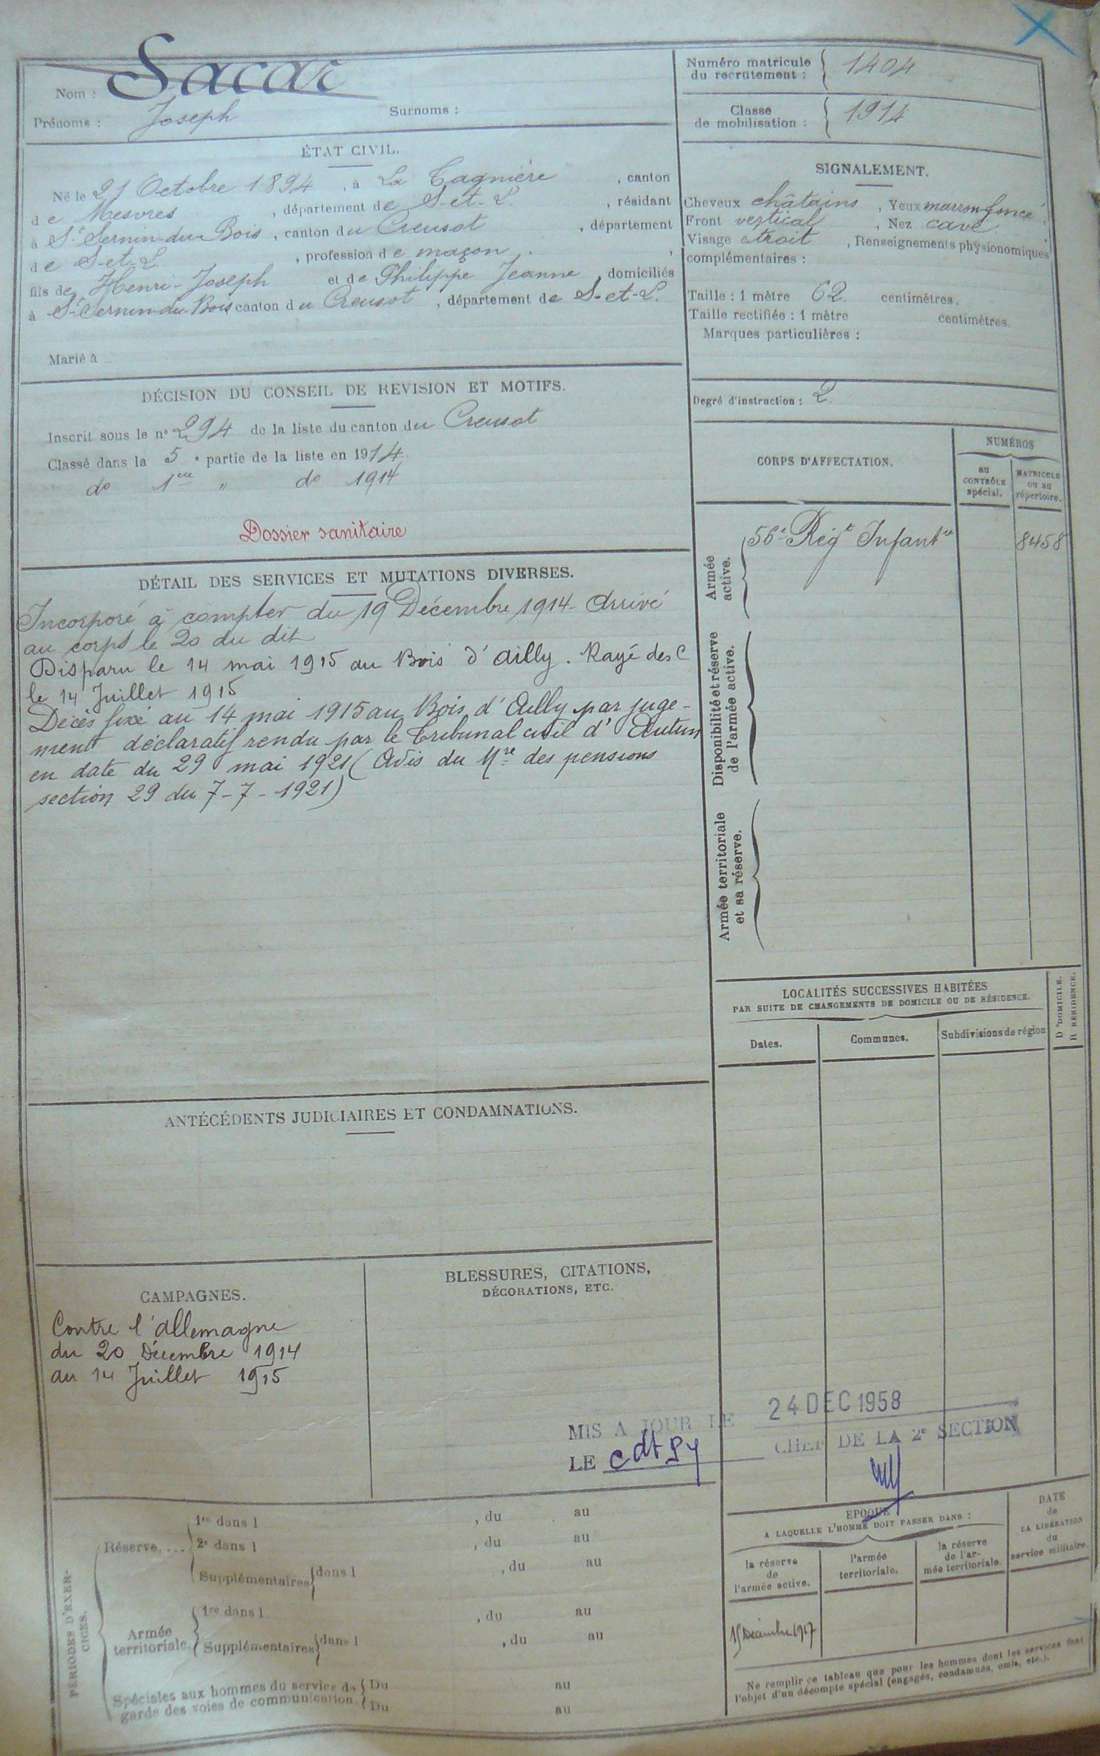 Nom : Sacar
Prénoms : Joseph Surnoms :
ÉTAT CIVIL.
Né le 21 Octobre 1894, à La Tagnière, canton
de Mesvres, département de S.-et-L., résidant
à St Sernin-du-Bois, canton du Creusot, département
de S-et-L, profession de maçon,
fils de Henri-Joseph et de Philippe Jeanne, domiciliés
à St Sernin-du-Bois canton du Creusot, département de S-et-L.
Marié à
DÉCISION DU CONSEIL DE REVISION ET MOTIFS.
Inscrit sous le n° 294 de la liste du canton du Creusot
Classé dans la 5e partie de la liste en 1914
do 1ere " do 1914
Dossier sanitaire
DÉTAIL DES SERVICES ET MUTATIONS DIVERSES.
Incorporé à compter du 19 Décembre 1914 - Arrivé
au corps le 20 du dit
Disparu le 14 mai 1915 au Bois d'Ailly. Rayé des C
le 14 Juillet 1915
Décès fixé au 14 mai 1915 au Bois d'Ailly par juge-
ment déclaratif rendu par le Tribunal civil d'Autun
en date du 29 mai 1921 (Avis du Mre des pensions
section 29 du 7-7-1921)
ANTÉCÉDENTS JUDICIAIRES ET CONDAMNATIONS.
CAMPAGNES.
Contre l'allemagne
du 20 Décembre 1914
au 14 Juillet 1915
BLESSURES, CITATIONS,
DÉCORATIONS, ETC.
MIS A JOUR LE 24 DEC 1958
LE CHEF DE LA 2e SECTION
PÉRIODES D'EXERCICES.
Réserve....
1re dans l , du au
2e dans l , du au
Supplémentaires dans l , du au
Armée territoriale.
1re dans l , du au
Supplémentaires dans l , du au
Spéciales aux hommes du service de Du au
garde des voies de communication. Du au
Numéro matricule
du recrutement : 1404
Classe
de mobilisation : 1914
SIGNALEMENT.
Cheveux châtains, Yeux marron foncé
Front vertical, Nez cave
Visage étroit, Renseignements physionomiques
complémentaires :
Taille : 1 mètre 62 centimètres.
Taille rectifiée : 1 mètre centimètres.
Marques particulières :
Degré d'instruction : 2
CORPS D'AFFECTATION.
NUMÉROS
au
CONTRÔLE
spécial.
MATRICULE
ou au
répertoire.
Armée
active.
56e Régt Infantie 8458
Disponibilité et réserve
de l'armée active.
Armée territoriale
et sa réserve.
LOCALITÉS SUCCESSIVES HABITÉES
PAR SUITE DE CHANGEMENTS DE DOMICILE OU DE RÉSIDENCE.
Dates. Communes. Subdivisions de région
D DOMICILE.
R RÉSIDENCE.
EPOQUE
A LAQUELLE L'HOMME DOIT PASSER DANS :
la réserve
de
l'armée active.
l'armée
territoriale.
la réserve
de l'ar-
mée territoriale.
DATE
de
LA LIBÉRATION
du
service militaire.
15 Décembre 1917
Ne remplir ce tableau que pour les hommes dont les services font
l'objet d'un décompte spécial (engagés, condamnés, omis, etc.).